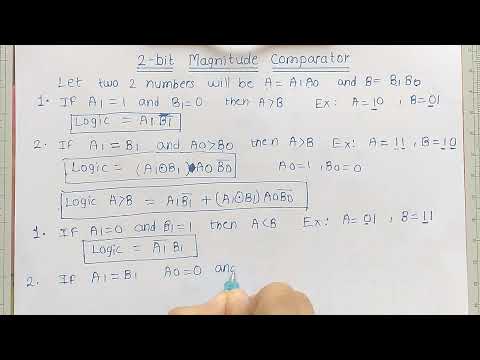 2-bit Magnitude Comparator
Let two 2 numbers will be A = A1A0 and B = B1B0
1. IF A1 = 1 and B1 = 0 then A>B Ex: A = 10 , B = 01
Logic = A1B̅1̅
2. IF A1 = B1 and A0>B0 then A>B Ex: A = 11 , B = 10
Logic = (A1⊙B1) A0B̅0̅ A0=1 , B0=0
Logic A>B = A1B̅1̅ + (A1⊙B1) A0B̅0̅
1. IF A1=0 and B1=1 then A<B Ex: A= 01 , B = 11
Logic = A̅1̅ B1
2. IF A1 = B1 A0=0 and